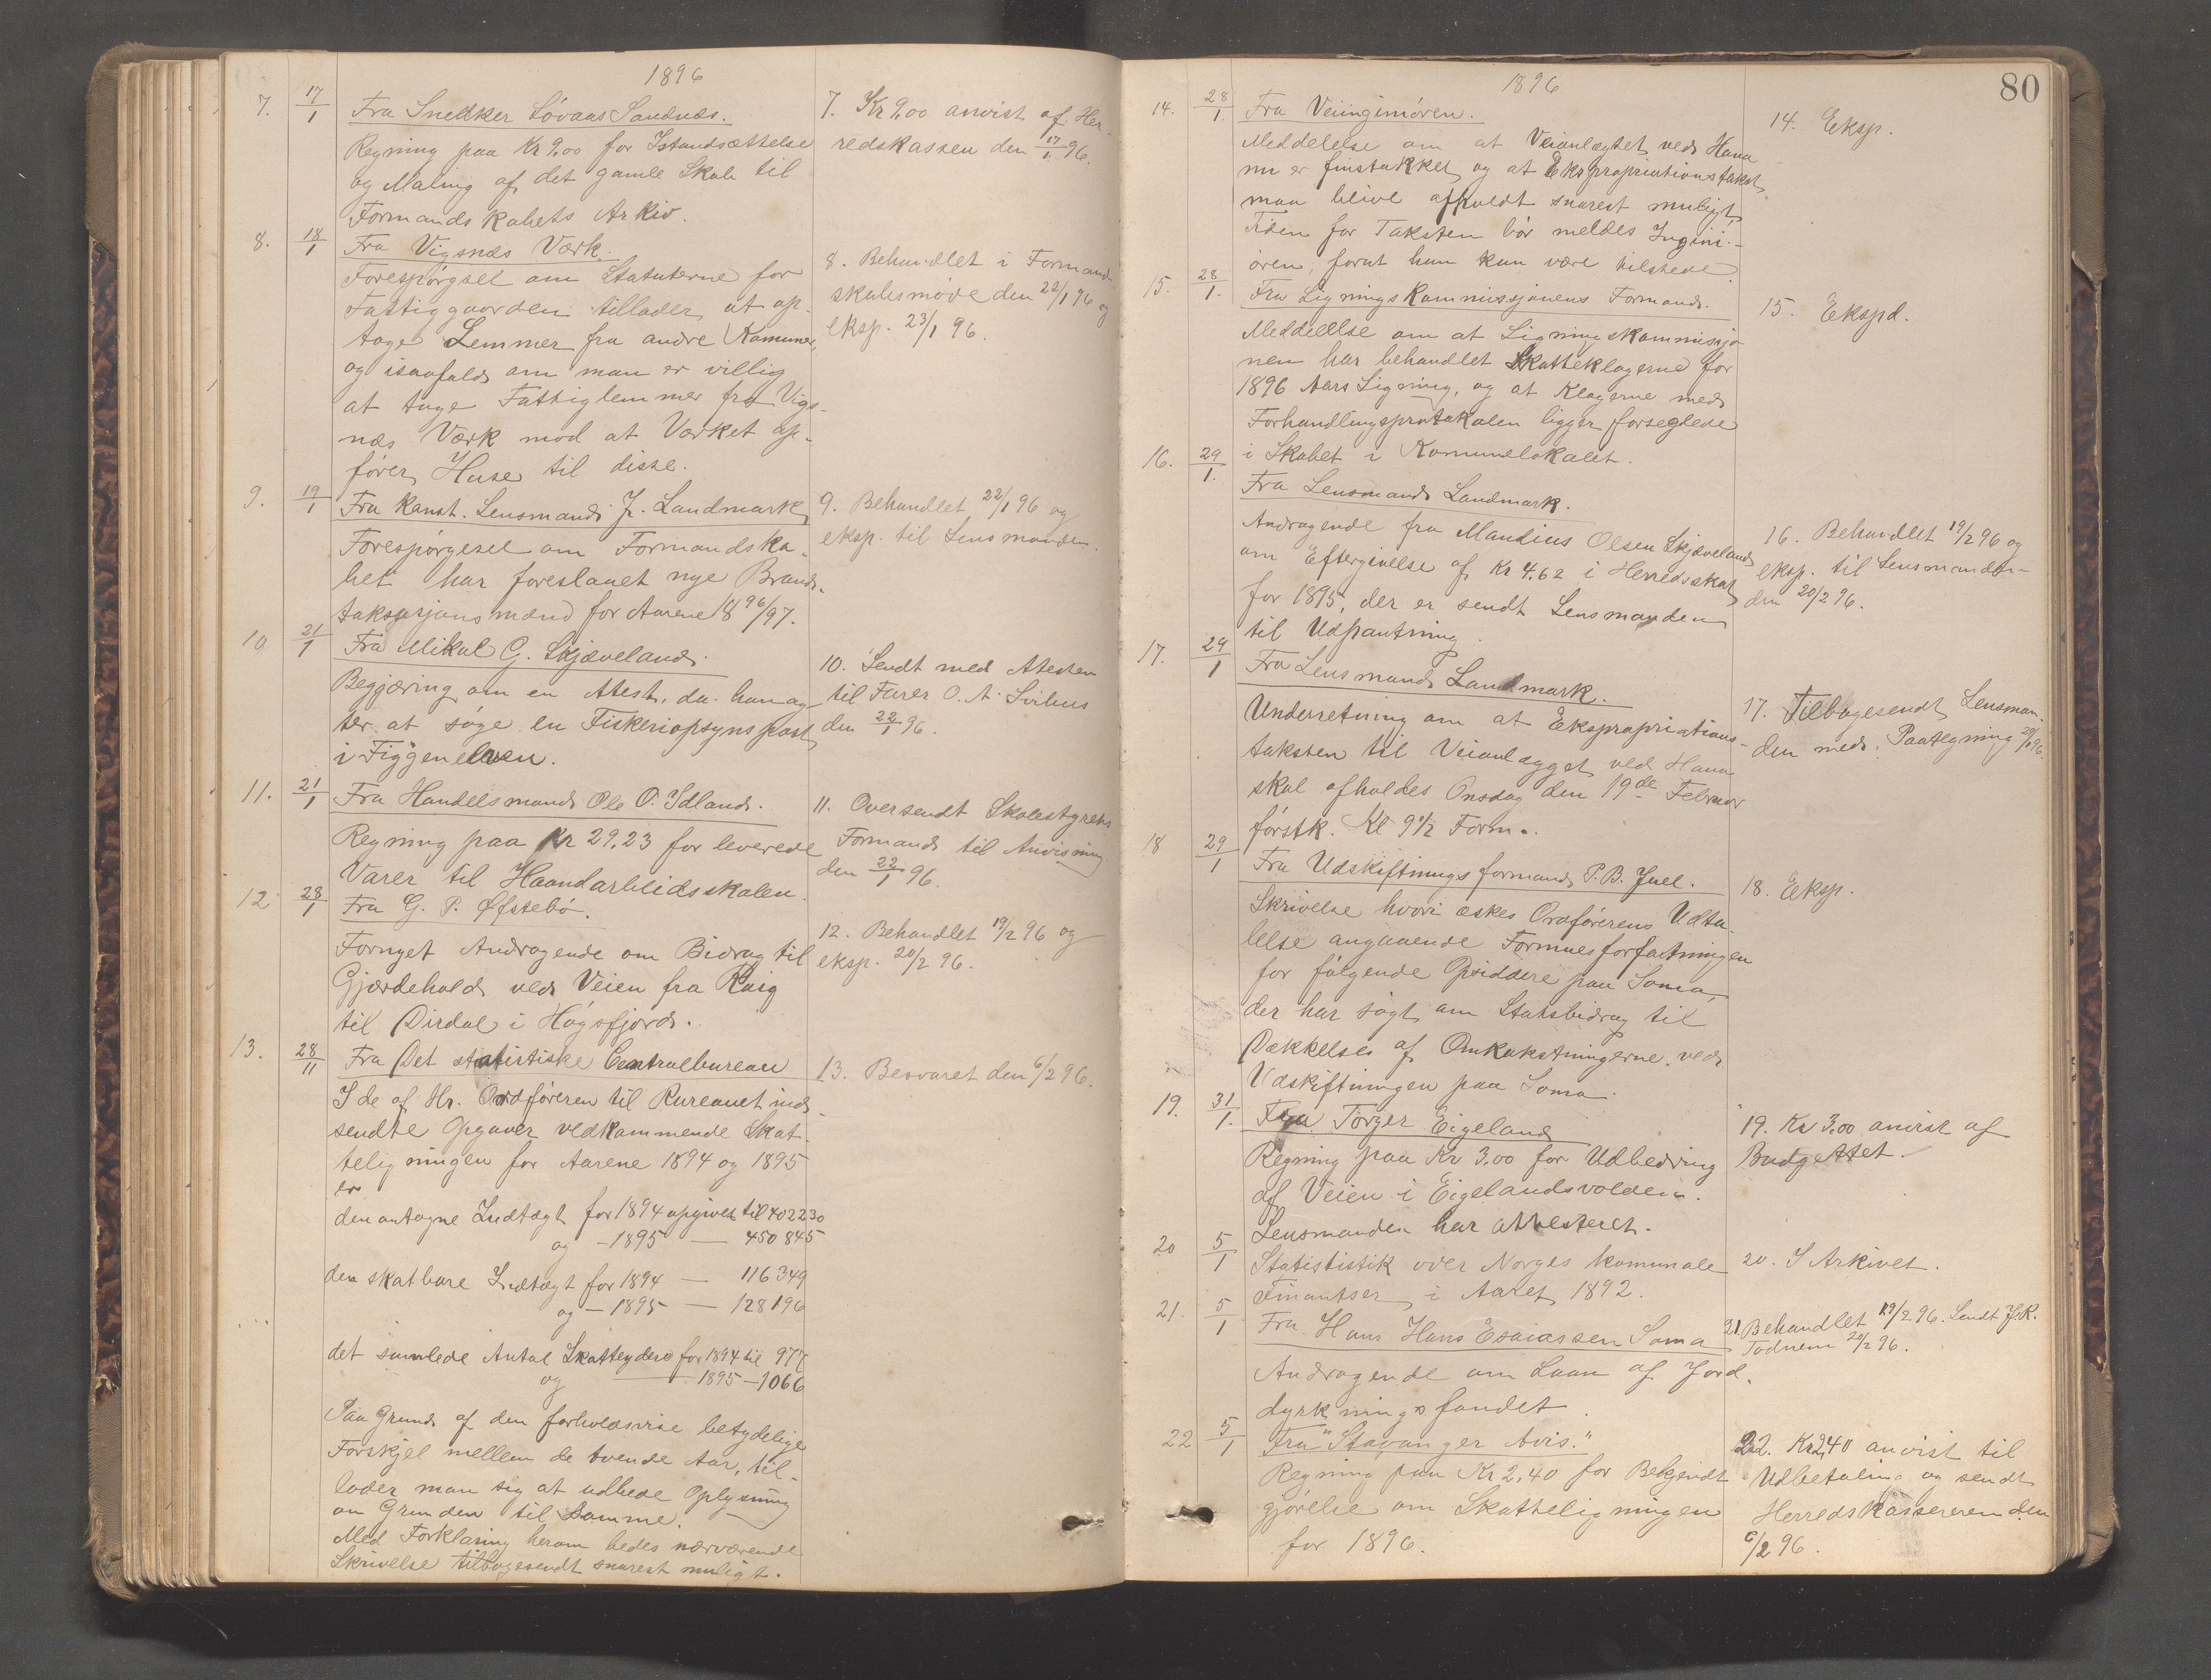 1896
7. 17/1 Fra Snedker Lövaas Sandnes.
Regning paa Kr 9,00 for Istandsættelse
og Maling af det gamle Skab til
Formandskabets Arkiv.
7. Kr 9,00 anvist af Her-
redskassen den 17/1 96.
8. 18/1 Fra Vigsnæs Værk.
Forespörgsel om Statuterne for
Fattiggaarden tillader at op-
tage Lemmer fra andre Komuner,
og isaafald om man er villig
at tage Fattiglemmer fra Vigs-
næs Værk mod at Værket op-
förer Huse til disse.
8. Behandlet i Formand-
skabsmöde den 22/1 96 og
eksp. 23/1 96.
9. 19/1 Fra Konst. Lensmand Jr. Landmark
Forespörgesel om Formandska-
bet har foreslaaet nye Brand-
taksasjonsmænd for Aarene 18 96/97.
9. Behandlet 22/1 96 og
eksp. til Lensmanden.
10 21/1 Fra Mikal G. Skjæveland.
Begjæring om en Attest, da han ag-
ter at söge en Fiskeriopsynspost
i Figgenelven.
10. Sendt med Attesten
til Farer O. A. Svihus
den 22/1 96.
11. 21/1 Fra Handelsmand Ole O. Idland.
Regning paa Kr 29,23 for leverede
Varer til Haandarbeidsskolen.
11. Oversendt Skolestyrets
Formand til Anvisning
den 22/1 96.
12 28/1 Fra G. P. Øfstebö.
Fornyet Andragende om Bidrag til
Gjærdehold ved Veien fra Raig
til Dirdal i Högsfjord.
12. Behandlet 19/2 96 og
eksp. 20/2 96.
13. 28/11 Fra Det statistiske Centralbureau
I de af Hr. Ordföreren til Bureauet ind-
sendte Opgaver vedkommende Skat-
teligningen for Aarene 1894 og 1895
er
den antagne Indtægt for 1894 opgivet til 402230
og - 1895 — 450845
den skatbare Indtægt for 1894 — 116349
og - 1895 — 128196
det samlede Antal Skatteydere for 1894 til 977
og 1895 - 1066
Paa Grund af den forholdsvise betydelige
Forskjel mellem de tvende Aar, til-
lader man sig at udbede Oplysning
om Grunden til Samme.
Med Forklaring herom bedes nærværende
Skrivelse tilbagesendt snarest muligt.
13. Besvaret den 6/2 96.
80
1896
14. 28/1. Fra Veiingeniören.
Meddelelse om at Veianlægtet ved Hana
nu er finstukket og at Ekspropriationstakst
maa blive afholdt snarest muligt.
Tiden for Taksten bör meldes Ingini-
ören, forat han kan være tilstede
14. Eksp.
15. 28/1. Fra Ligningskommissjonens Formand.
Meddelelse om at Ligningskommissjo-
nen har behandlet Skatteklagerne for
1896 Aars Ligning, og at Klagerne med
Forhandlingsprotokolen ligger forseglede
i Skabet i Komunelokalet.
15. Ekspd.
16. 29/1. Fra Lensmand Landmark.
Andragende fra Mandius Olsen Skjæveland
om Eftergivelse af Kr 4.62 i Herredsskat
for 1895, der er sendt Lensmanden
til Udpantning.
16. Behandlet 19/2 96 og
eksp. til Lensmanden
den 20/2 96.
17. 29/1 Fra Lensmand Landmark.
Underretning om at Ekspropriations-
taksten til Veianlægget ved Hana
skal afholdes Onsdag den 19de Februar
förstk. Kl 9 1/2 Form.
17. Tilbagesendt Lensman-
den med Paategning 29/1 96.
18 29/1 Fra Udskiftningsformand P. B. Juel.
Skrivelse hvori æskes Ordförerens Udta-
lelse angaaende Formuesforfatningen
for fölgende Opsiddere paa Soma,
der har sögt om Statsbidrag til
Dækkelse af Omkostningerne ved
Udskiftningen paa Soma.
18. Eksp.
19. 31/1. Fra Torger Eigeland
Regning paa Kr 3.00 for Udbedring
af Veien i Eigelandsvolden.
Lensmanden har attesteret.
19. Kr 3.00 anvist af
Budgettet.
20 5/1 Statististik over Norges komunale
Finantser i Aaret 1892.
20. I Arkivet.
21. 5/1 Fra Hans Hans Esaiassen Soma
Andragende om Laan af Jord-
dyrkningsfondet.
21 Behandlet 19/2 96. Sendt J. R.
Todnem 20/2 96.
22 5/1 Fra "Stavanger Avis."
Regning paa Kr 2,40 for Bekjendt
gjörelse om Skatteligningen
for 1896.
22. Kr 2,40 anvist til
Udbetaling og sendt
Herredskassereren den
6/2 96.